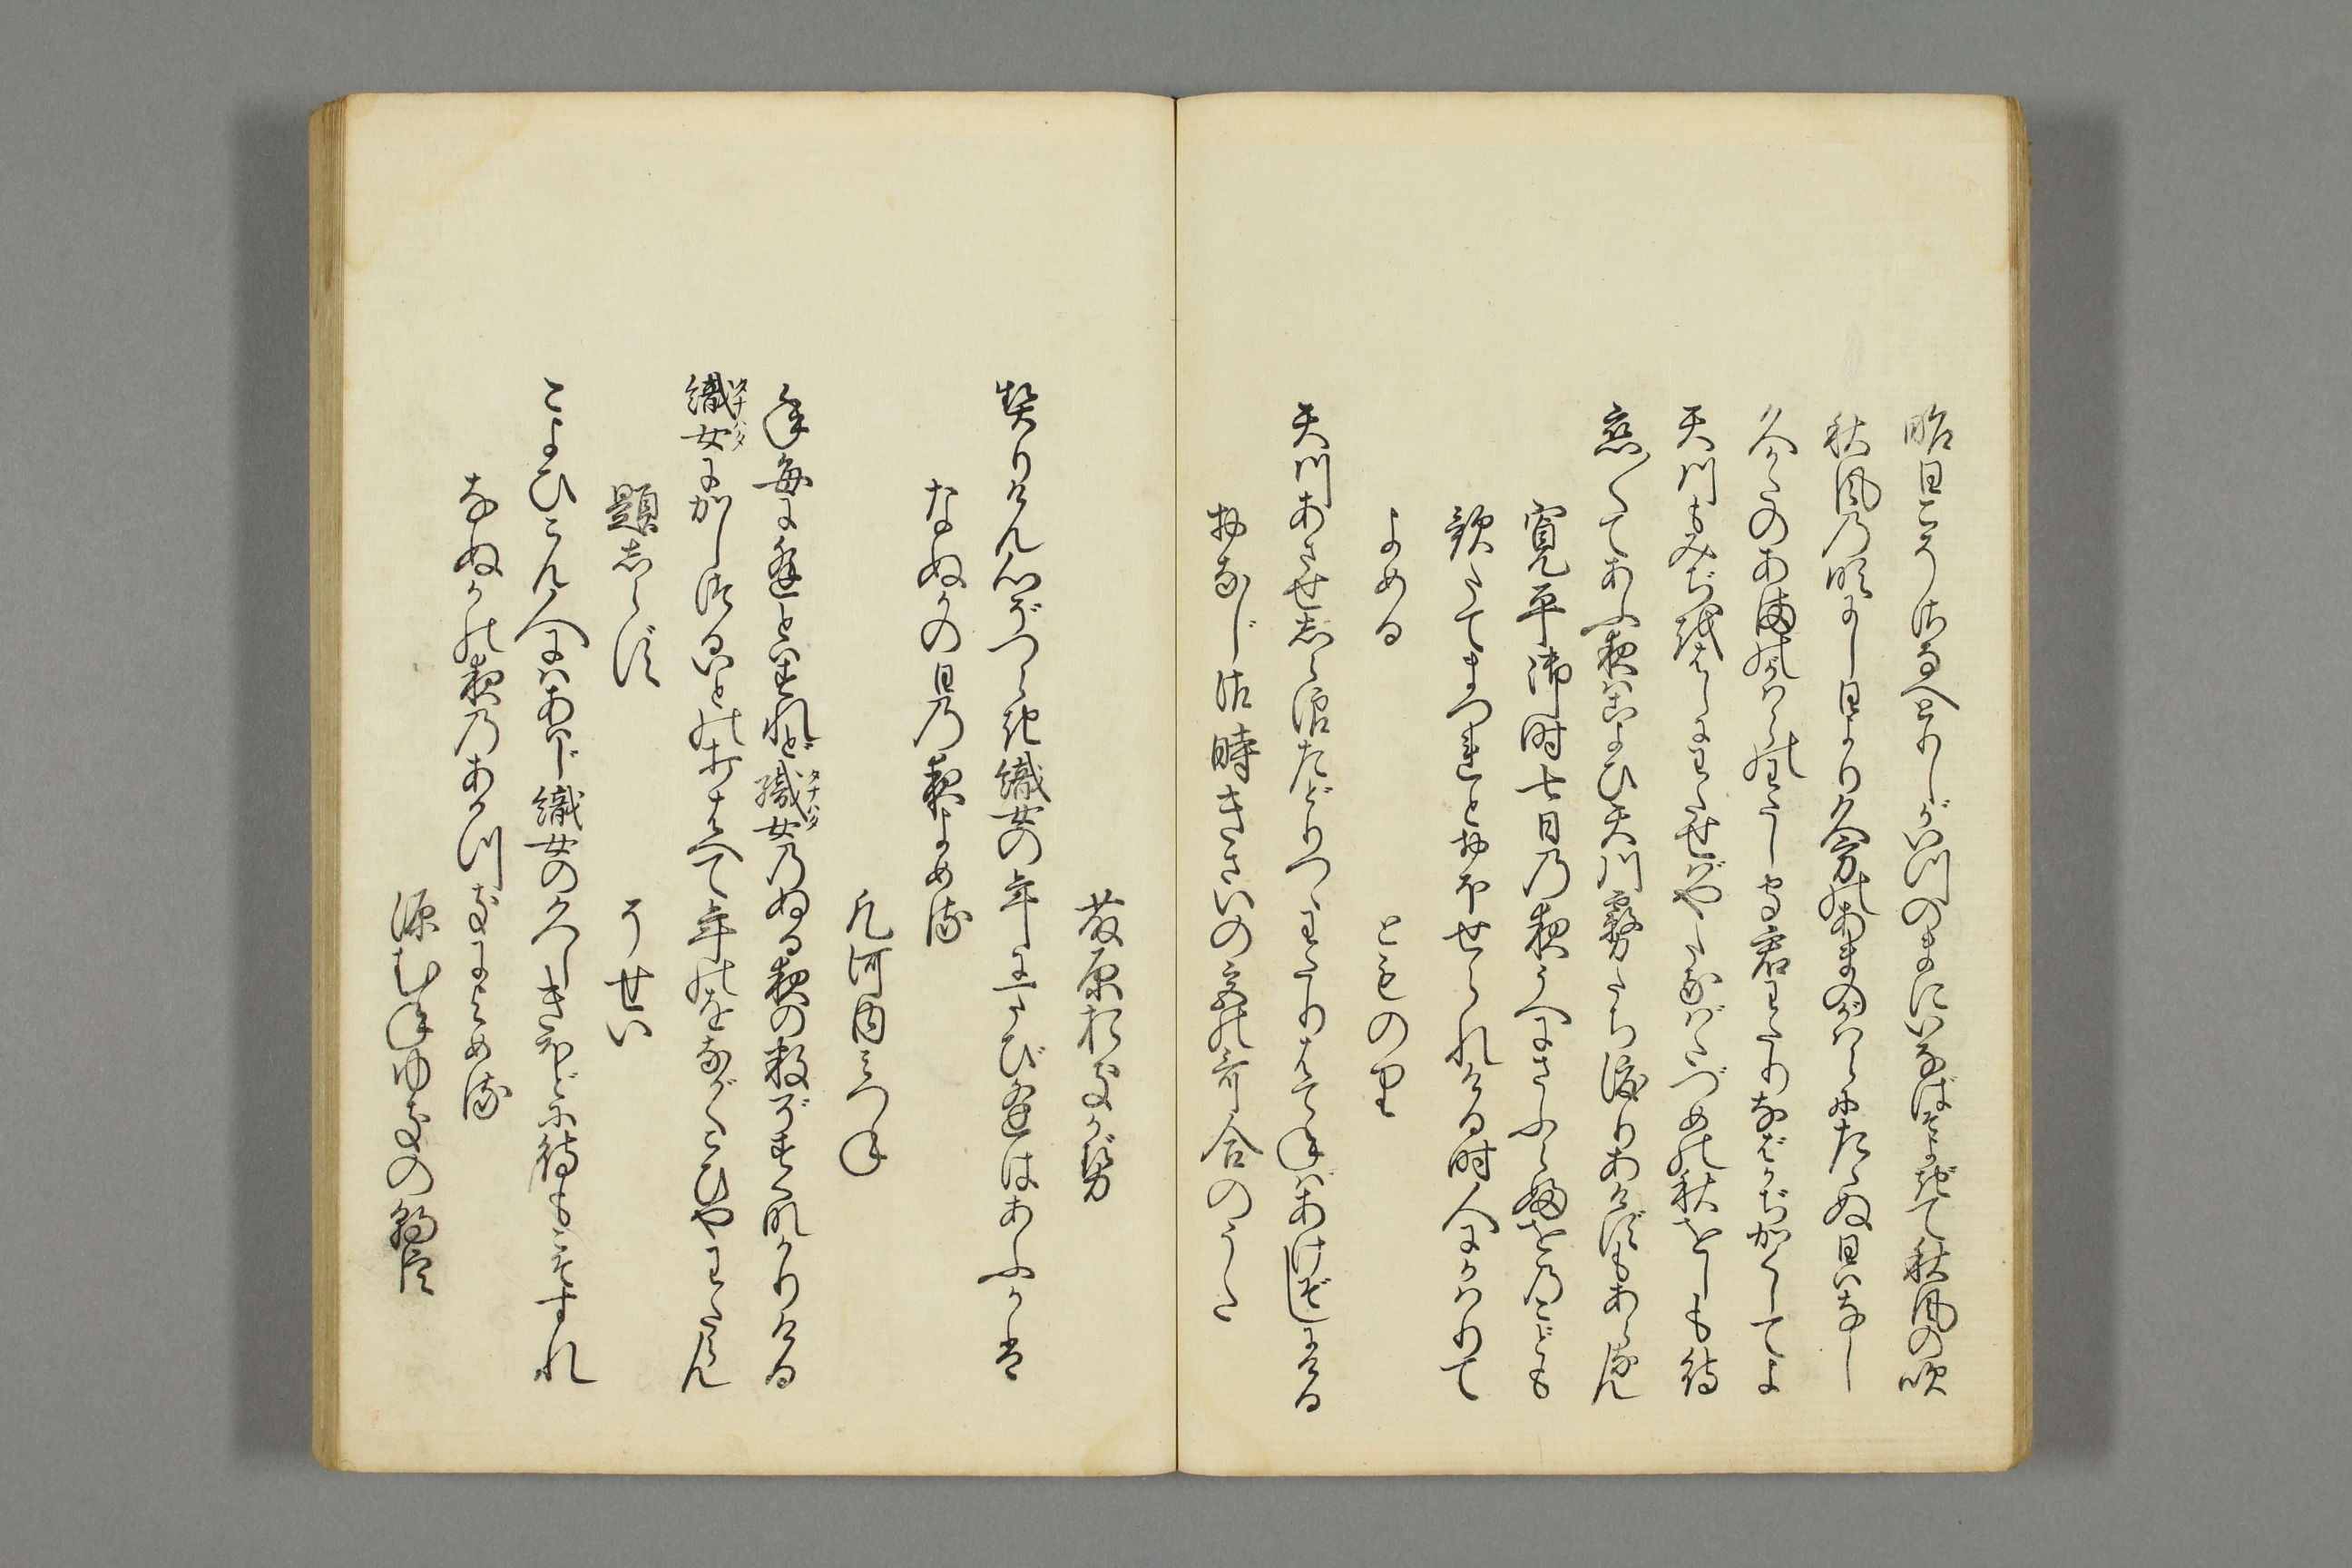 昨日こそさなへとりしがいつのまにいなばそよぎて秋風の吹
秋風の吹にし日より久方のあまのかはらにたゝぬ日はなし
久かたのあまのかはらのわたし守君わたりなばかぢかくしてよ
天川もみぢをはしにわたせばやたなばたづめの秋をしも待
恋〳〵てあふ夜はこよひ天川霧たち渡りあけずもあらなん
寛平御時七日の夜うへにさふらふをのこども
歌たてまつれとおほせられける時人にかはりて
よめる
とものり
天川あさせしら浪たどりつゝわたりはてねばあけぞしにける
おなじ御時きさいの宮の哥合のうた
藤原おきかぜ
契りけん心ぞつらき織女の年に一たびあふはあふかは
なぬかの日の夜よめる
凡河内みつね
年毎に逢とはすれど織女のぬる夜の数ぞすくなかりける
タナバタ
織女にかしつるいとの打はへて年のをながくこひやわたらん
タナバタ
題しらず
そせい
こよひこん人にはあはじ織女の久しきほどに待もこそすれ
なぬかの夜のあかつきによめる
源むねゆきの朝臣